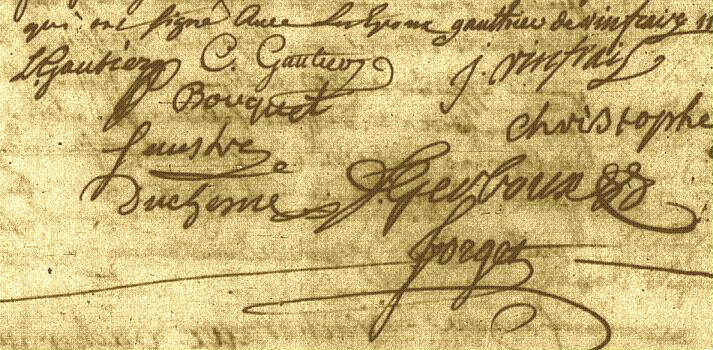 qui ont signé avec les Epoux gauthier de vinfrais
L. Gautier C. Gautier j. vinfrais
Bouquet
christophe
faustre
Duchesne J. Gerboux
forget